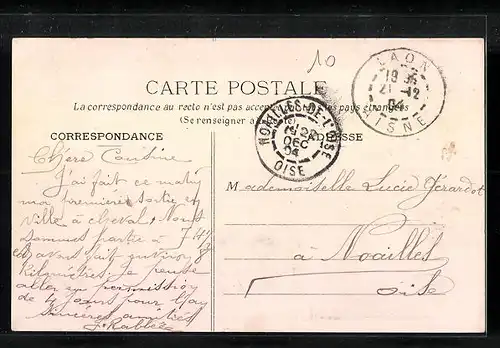 10
LAON
19 35
21 -12
04
AISNE
CARTE POSTALE
La correspondance au recto n'est pas acceptée par tous les pays étrangers
(Se renseigner à la
NOAILLES-DE-L'OISE
22
DEC
04
OISE
CORRESPONDANCE
ADRESSE
Chère Cousine
J'ai fait ce matin
ma première sortie en
ville à cheval, Nous
sommes partis à 7 H
et avons fait environ
Kilomètres, Je pense
aller en permission
de 4 jours pour
sincères amitiés
Mademoiselle Lucie Gérardot
à Noailles
Oise